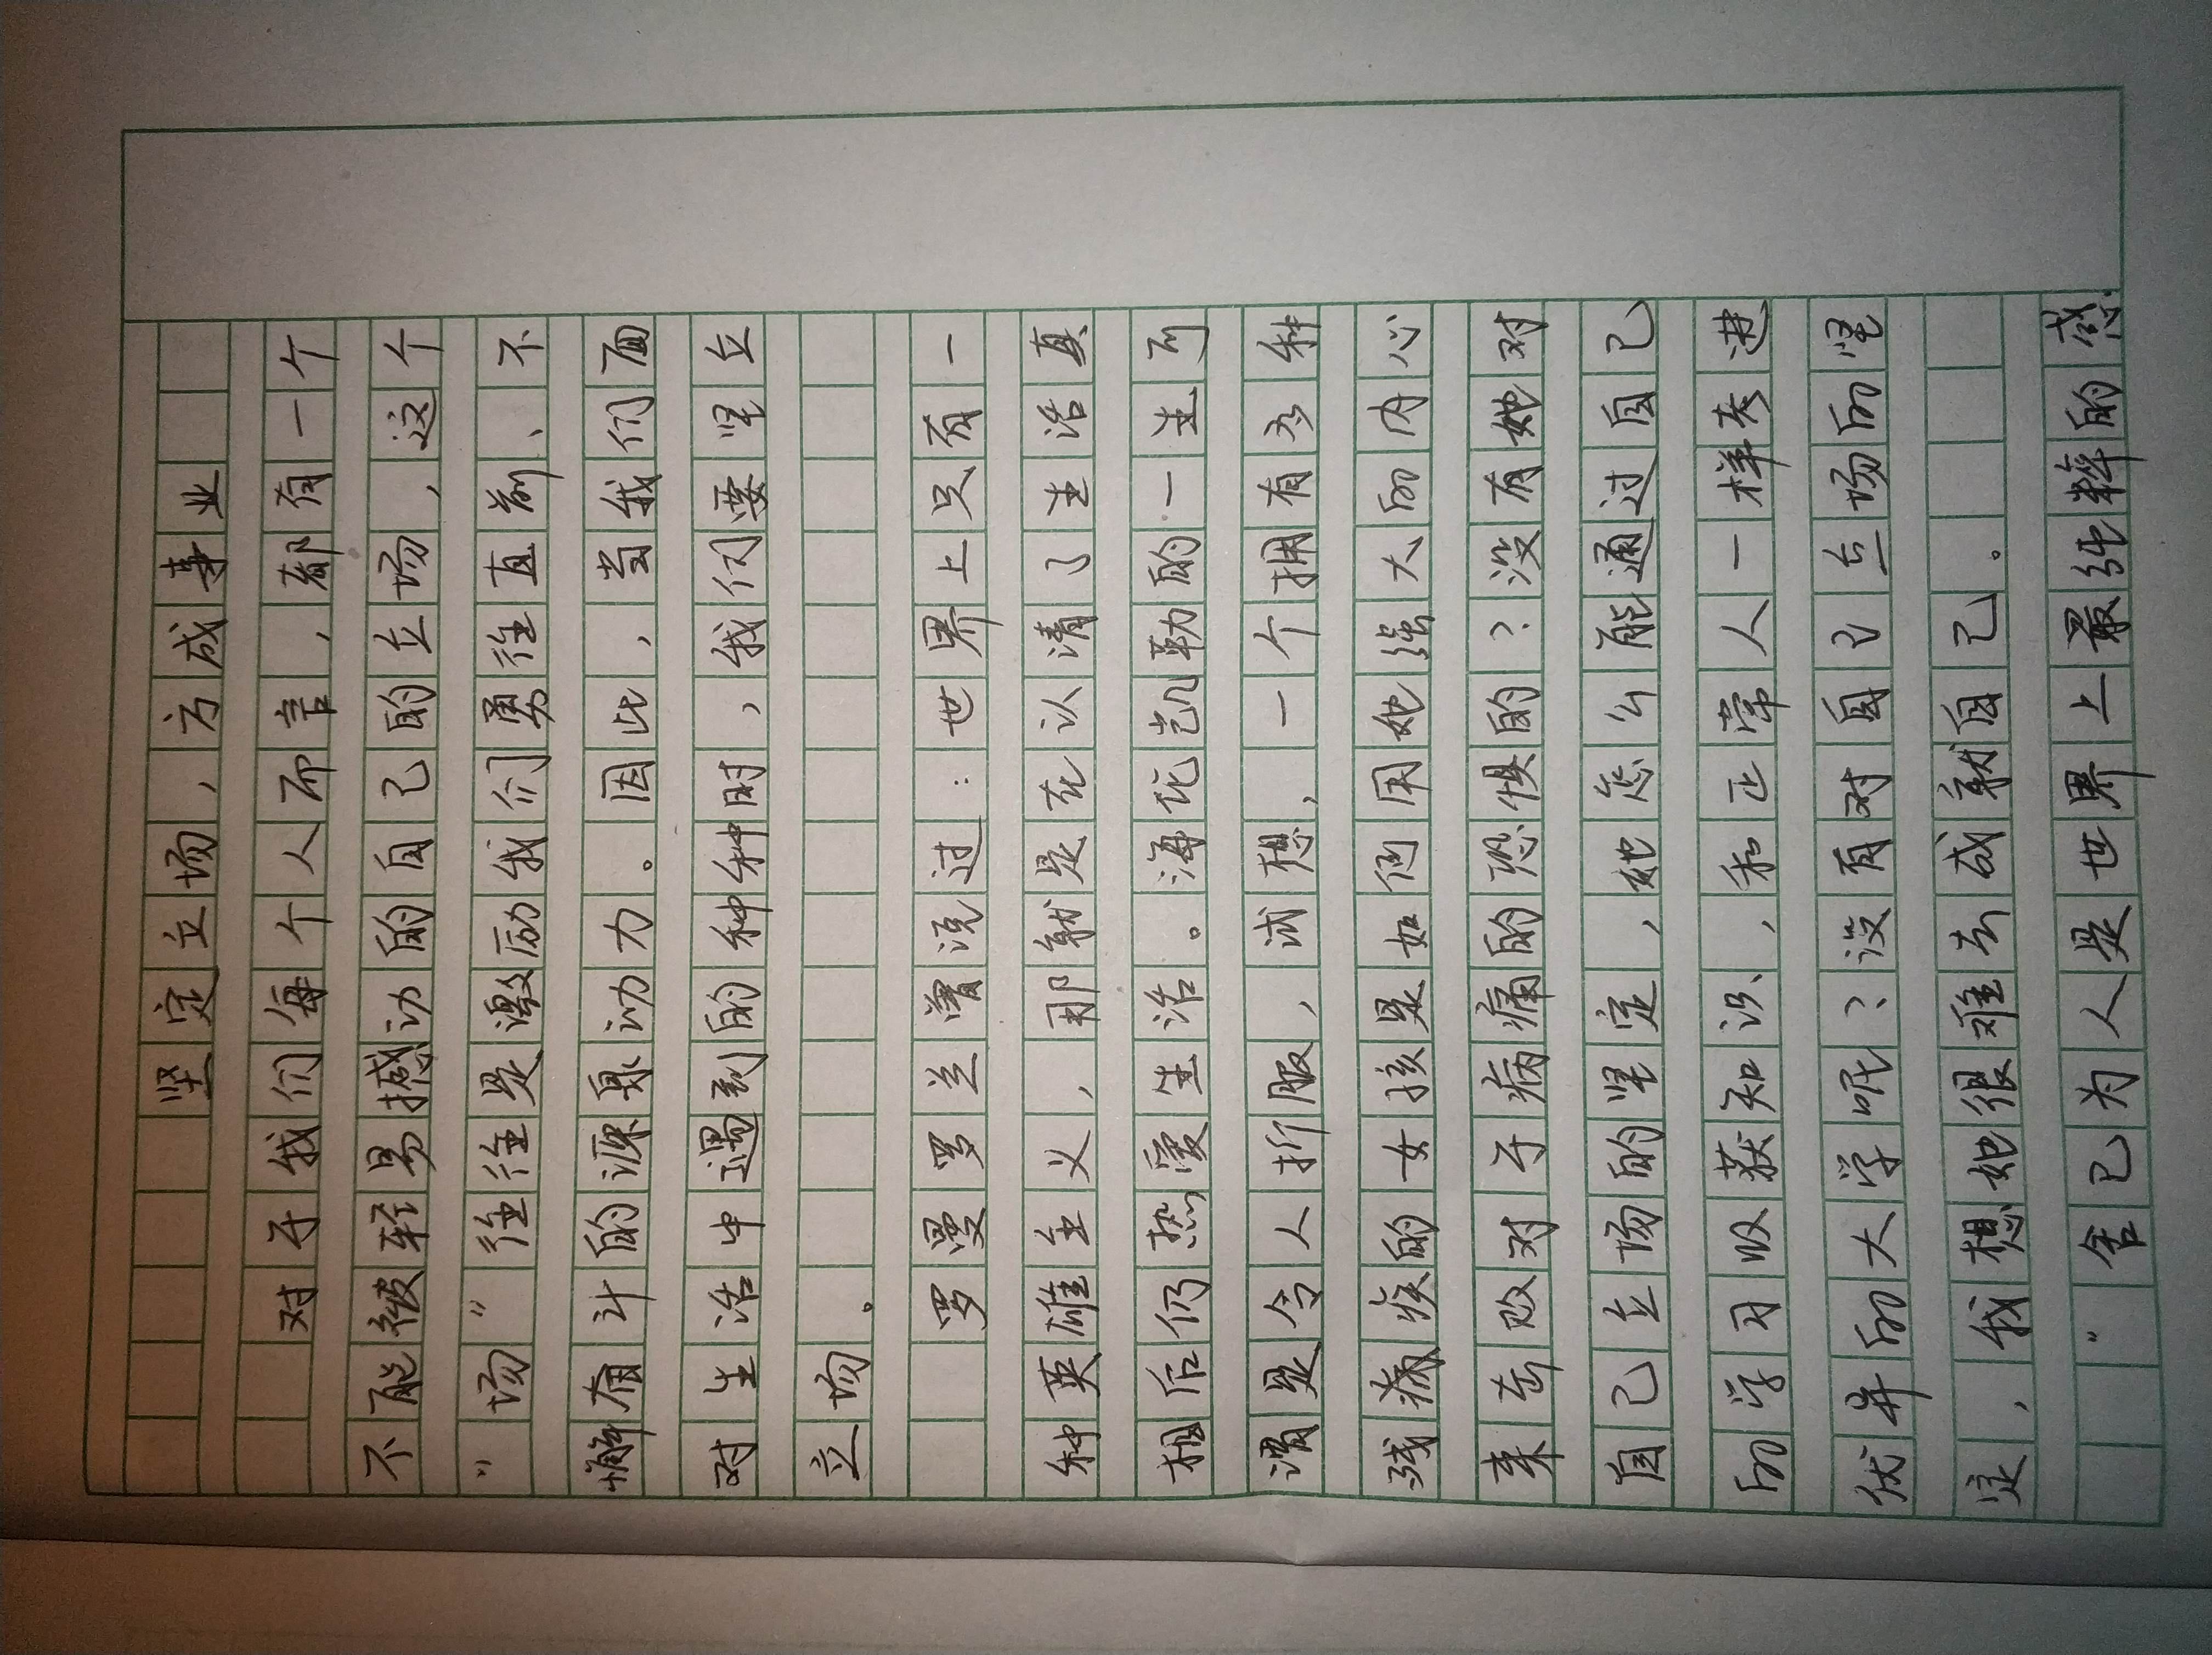 坚定立场，方成事业
对于我们每个人而言，都有一个
不能被轻易撼动的自己的立场，这个
“场”往往是激励我们勇往直前、不
懈奋斗的源泉动力。因此，当我们面
对生活中遇到的种种时，我们要坚立
立场。
罗曼罗兰曾说过：世界上只有一
种英雄主义，那就是在认清了生活真
相后仍热爱生活。海伦凯勒的一生可
谓是令人折服，试想，一个拥有多种
残病疾的女孩是如何用她强大的内心
来击败对于病痛的恐惧的？没有她对
自己立场的坚定，她怎么能通过自己
的学习吸获知识，和正常人一样考进
优异的大学呢？没有对自己立场的坚
定，我想她很难去成就自己。
“舍己为人是世界上最纯粹的感